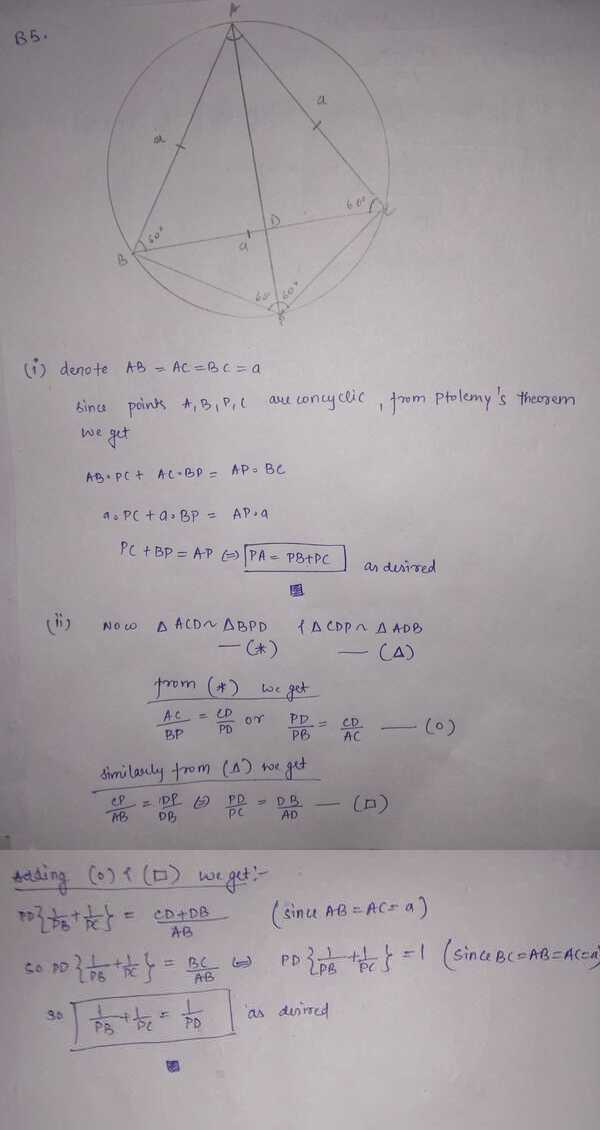 B5.
A
a
a
60°
60°
C
B
a
D
60
60°
P
(i) denote AB = AC = BC = a
since points A, B, P, C are concyclic, from Ptolemy's theorem
we get
AB·PC + AC·BP = AP·BC
a·PC + a·BP = AP·a
PC + BP = AP ⇔ PA = PB+PC as desired
(ii) Now Δ ACD ~ Δ BPD & Δ CDP ~ Δ ADB
— (*) — (Δ)
from (*) we get
AC/BP = CD/PD or PD/PB = CD/AC — (o)
similarly from (Δ) we get
CP/AB = DP/DB ⇔ PD/PC = DB/AD — (□)
Adding (o) & (□) we get:-
PD{1/PB + 1/PC} = CD+DB/AB (since AB = AC = a)
so PD{1/PB + 1/PC} = BC/AB ⇔ PD{1/PB + 1/PC} = 1 (since BC=AB=AC=a)
so 1/PB + 1/PC = 1/PD as desired